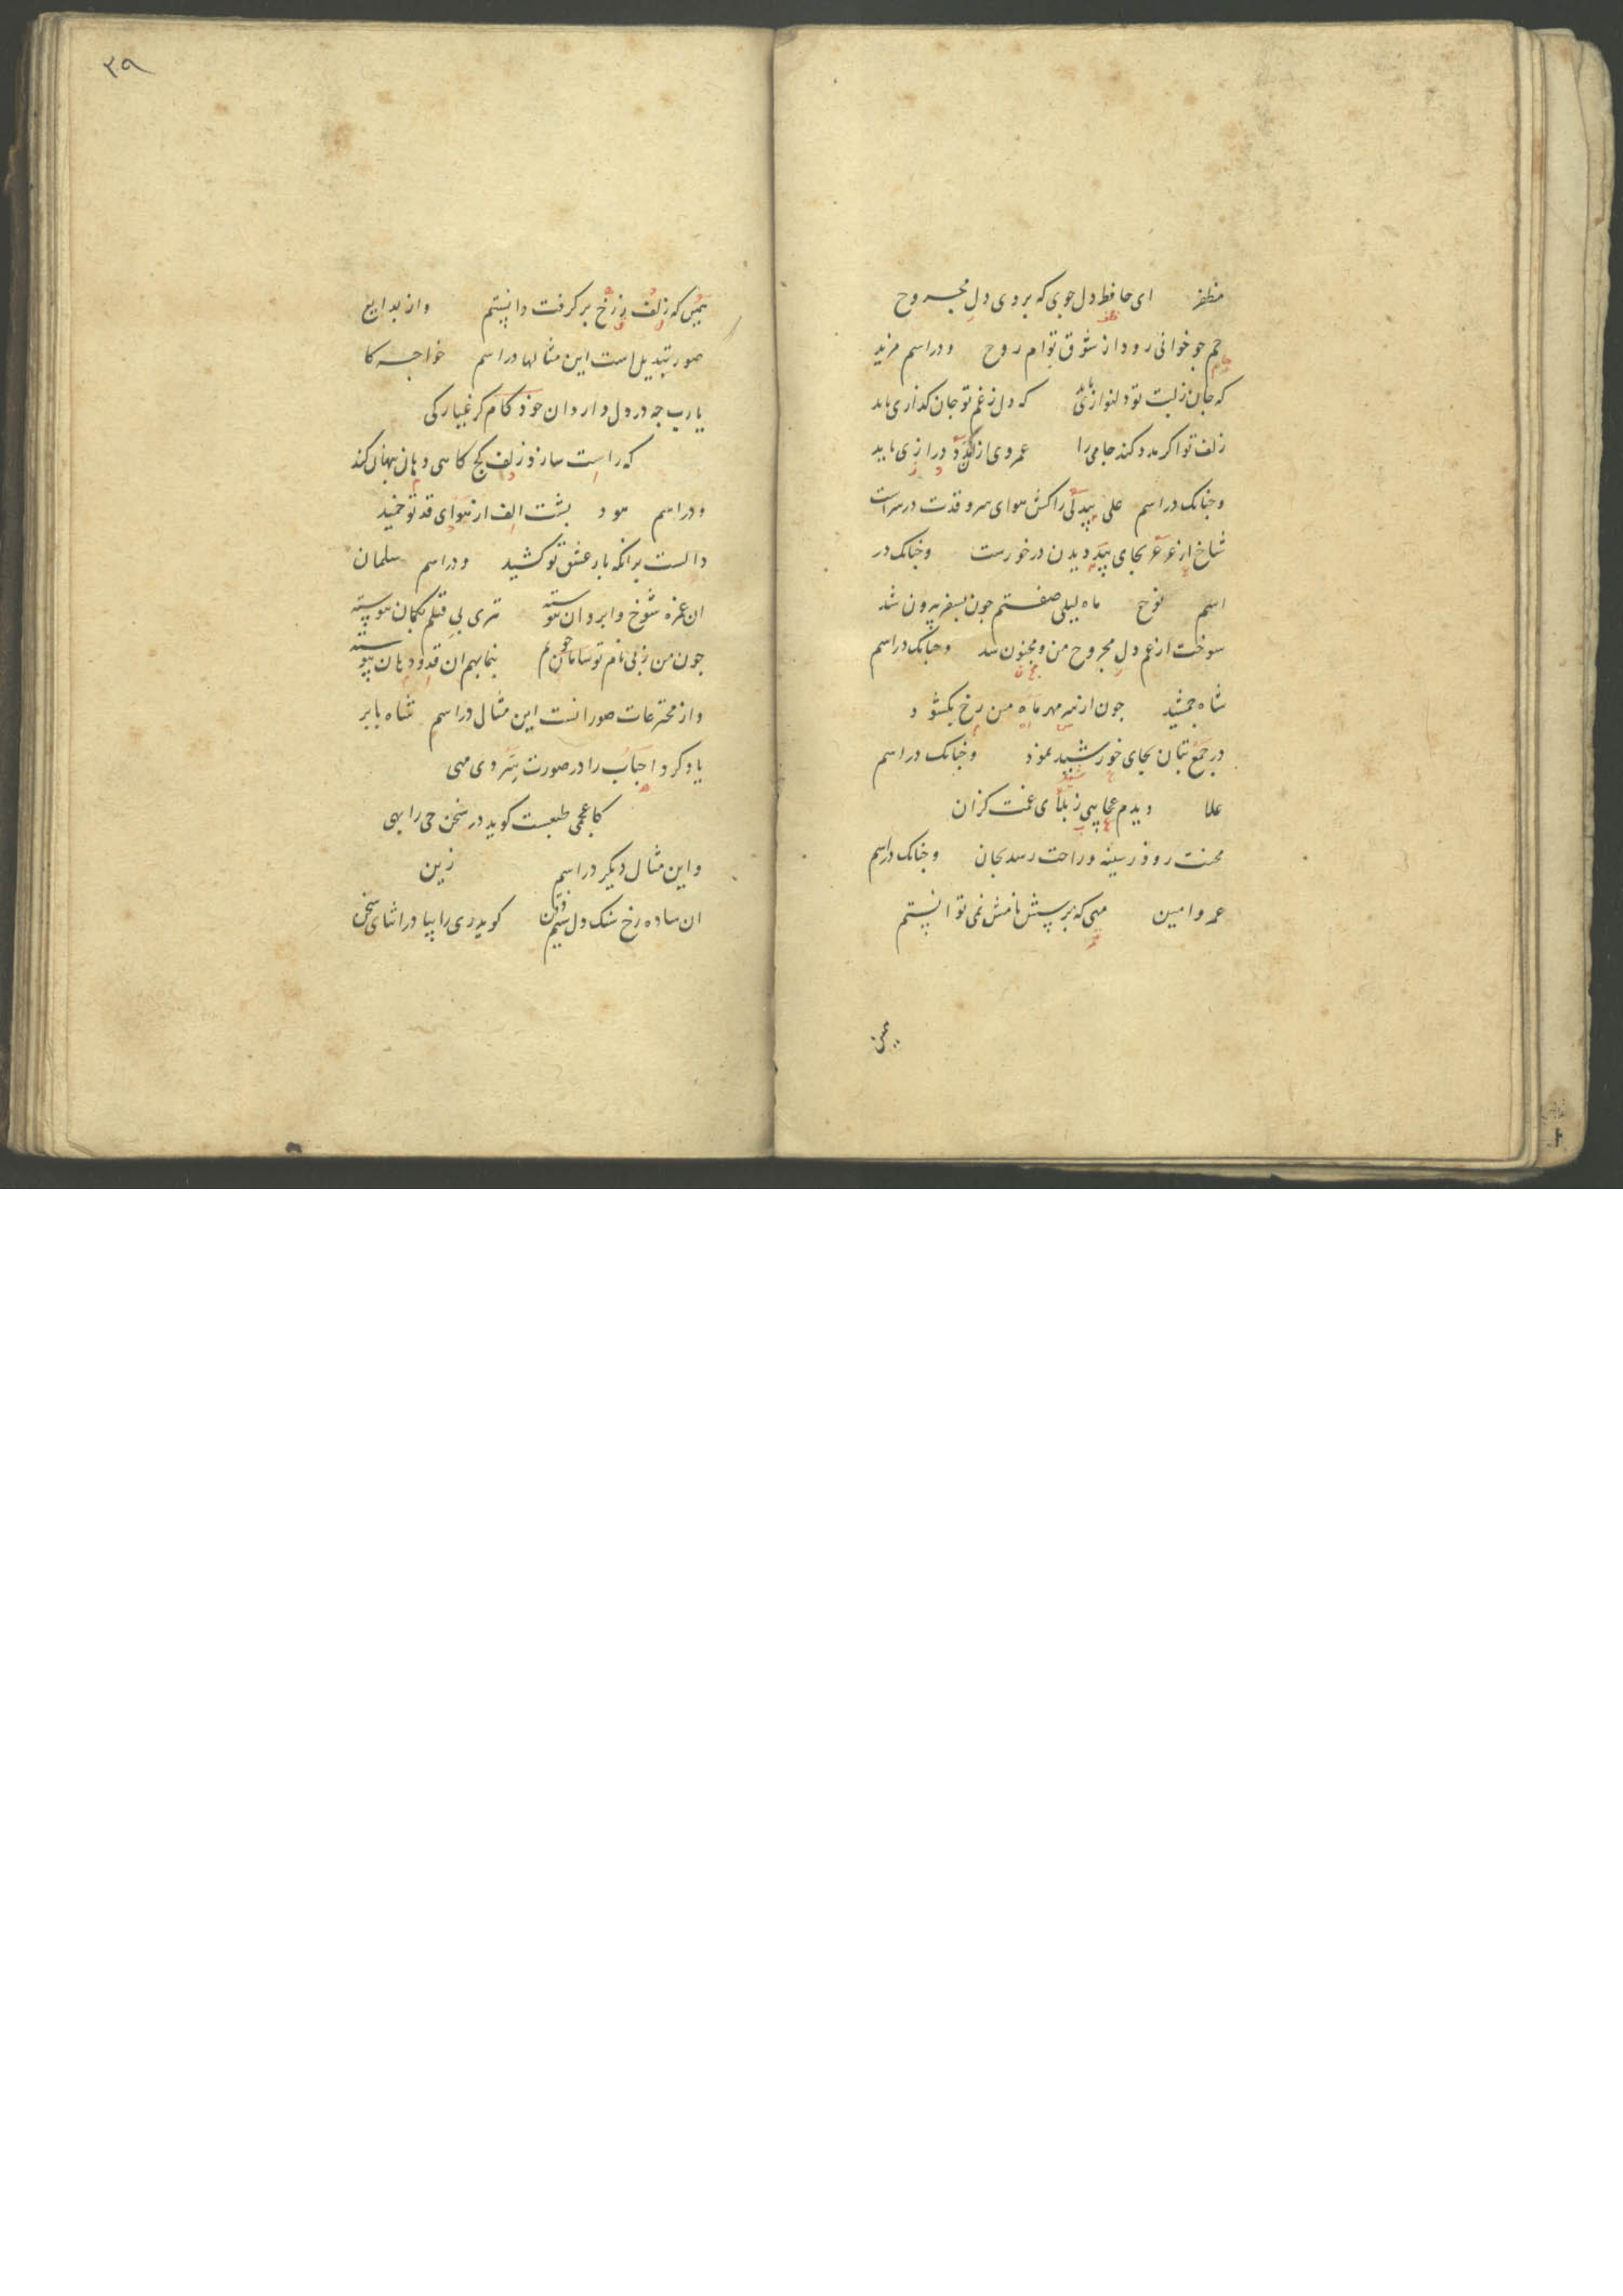 مظفر ای حافظ دل جوی که بر وی دل مجروح
حم جو خوانی رود از شوق توام روح ودر اسم مزید
که جان زلبت تو دلنوازی یابد که دل زغم تو جان کدازی یابد
زلف تو اکر مدد کند جامی را عمروی از کذرد درازی یابد
وجنانک در اسم علی بیدلی راکش هوای سرو قدت در سراست
شاخ از عرعر بجای بید دیدن درخورست وجنانک در
اسم نوح ماه لیلی صفتم جون بسفر بیرون شد
سوخت از غم دل مجروح من و مجنون شد وجنانک در اسم
شاه جمشید جون از سر مهر ماه من رخ بکشود
در جمع بتان بجای خورشید نمود وجنانک در اسم
علا دیدم عجایبی زبلای غمت کزان
محنت رود زسینه وراحت رسد بجان وجنانک در اسم
عمر وامین مهی که بر سش نامش نمی توانستم
۳۹
که زلف زرخ بر کرفت دانستم واز بدایع
صور تبدیل است این مثالها در اسم خواجه کا
یارب جه در دل دارد ان خود کام کر غیارکی
که راست سازد زلف کج کاهی دهان بنهان کند
ودر اسم هود بشت الف از هوای قد تو خمید
دالست برانکه بار عشق تو کشید ودر اسم سلمان
ان غمزه شوخ وابروان تیری بی قتلم بکمان
جون من زبی نام تو بنما بهم ان قد ودهان
واز مخترعات صور انست این مثال در اسم شاه بابر
یاد کرد احباب را در صورت سردی مهی
کاعجمی طبعست کوید در سخن حی را بهی
واین مثال دیکر در اسم زین
ان ساده رخ سنک دل سیم ذقن کوید ری را بیا در اثنای سخن